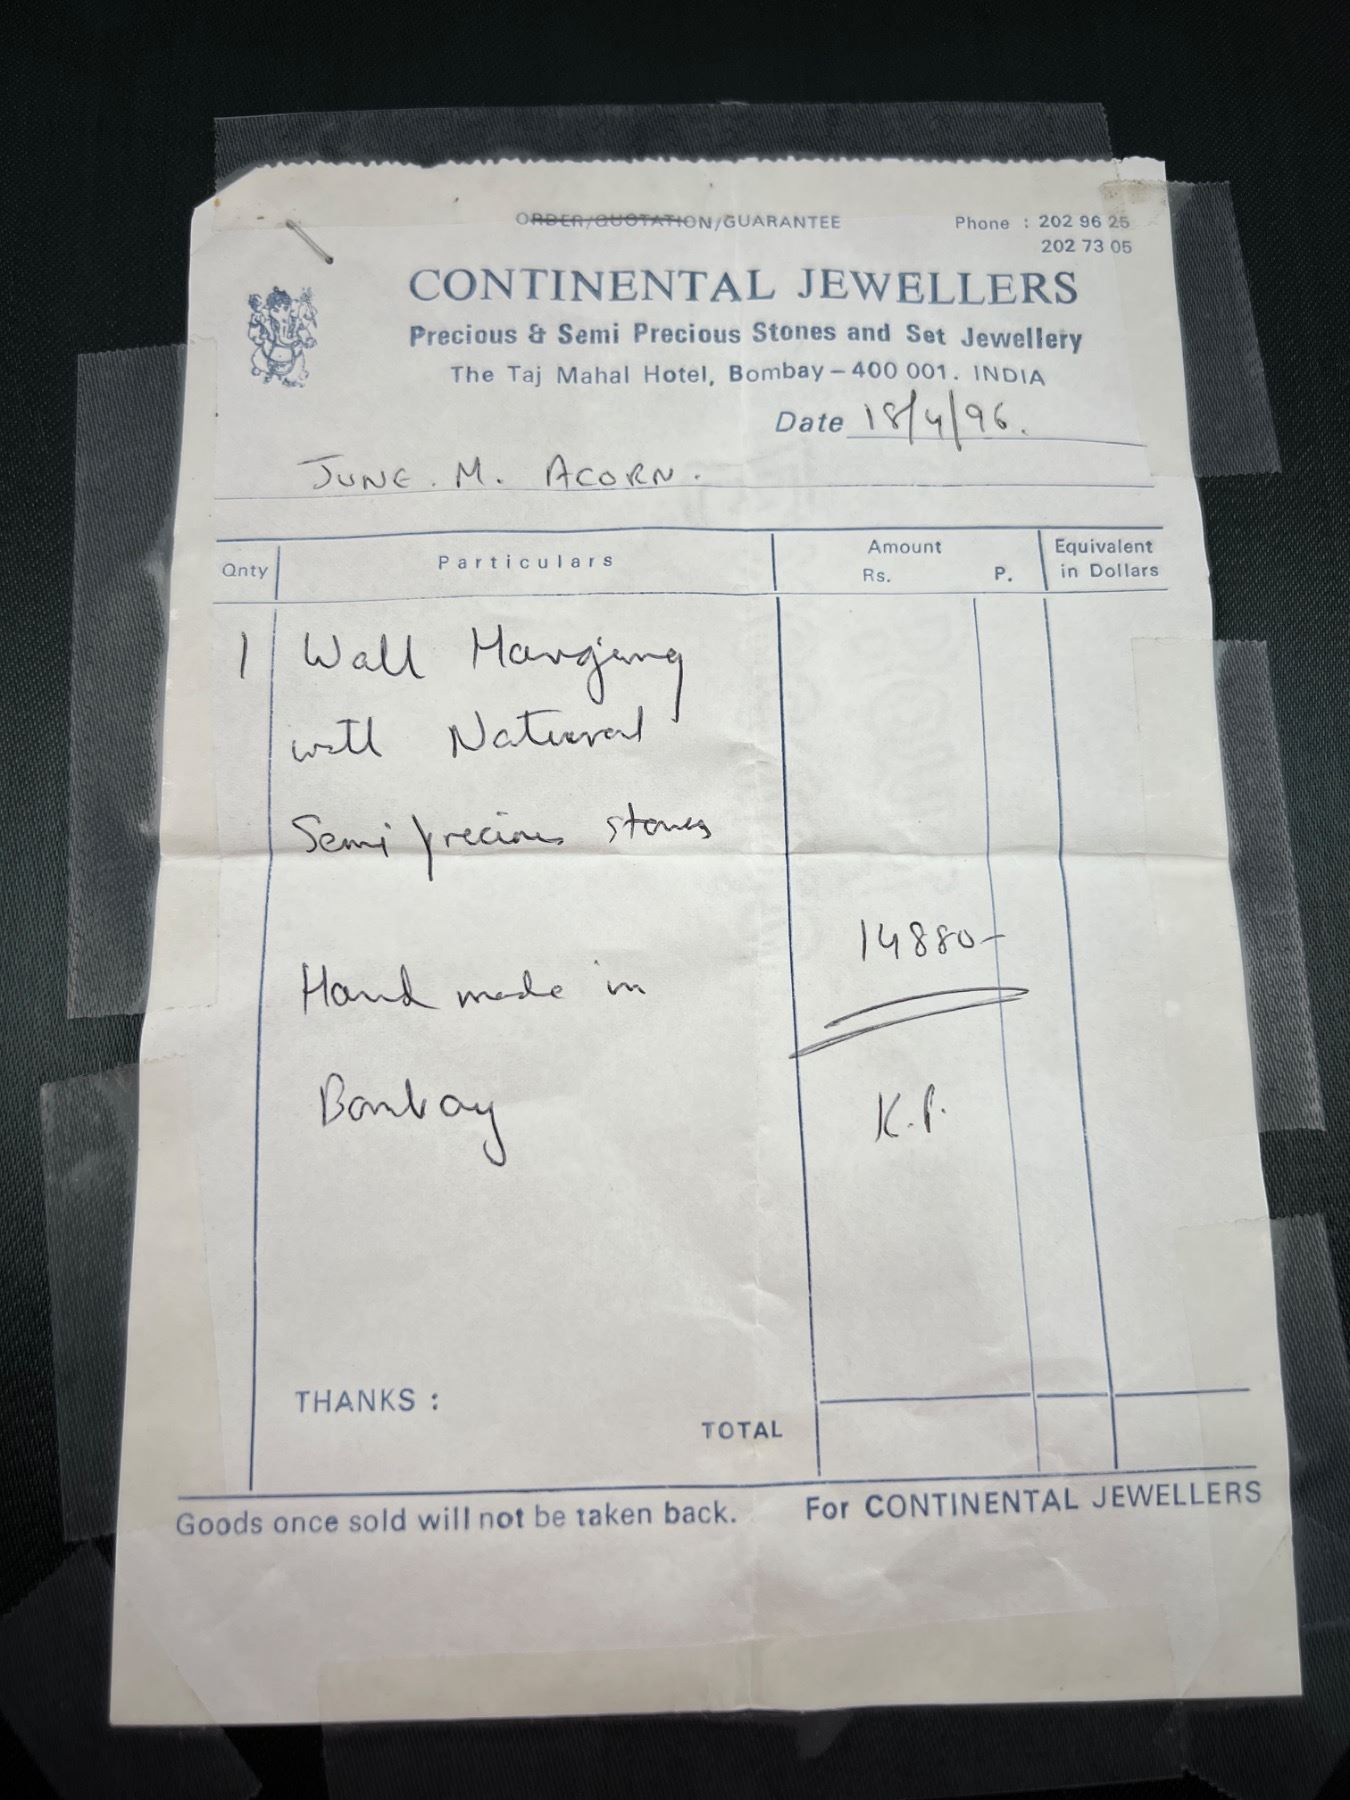 ORDER/QUOTATION/GUARANTEE
Phone : 202 96 25
202 73 05
CONTINENTAL JEWELLERS
Precious & Semi Precious Stones and Set Jewellery
The Taj Mahal Hotel, Bombay – 400 001. INDIA
Date 18/4/96.
JUNE. M. ACORN.
Qnty Particulars Amount Rs. P. Equivalent in Dollars
1 Wall Hanging
with Natural
Semi precious stones
14880-
Hand made in
Bombay
K.P.
THANKS :
TOTAL
Goods once sold will not be taken back. For CONTINENTAL JEWELLERS